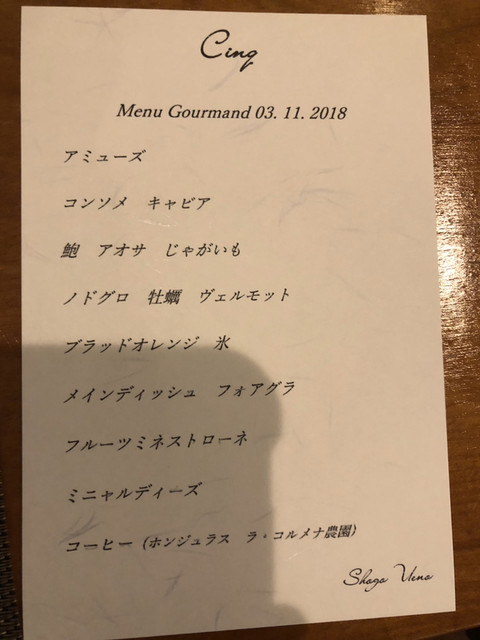 Cinq
Menu Gourmand 03. 11. 2018
アミューズ
コンソメ　キャビア
鮑　アオサ　じゃがいも
ノドグロ　牡蠣　ヴェルモット
ブラッドオレンジ　氷
メインディッシュ　フォアグラ
フルーツミネストローネ
ミニャルディーズ
コーヒー（ホンジュラス　ラ・コルメナ農園）
Shogo Ueno